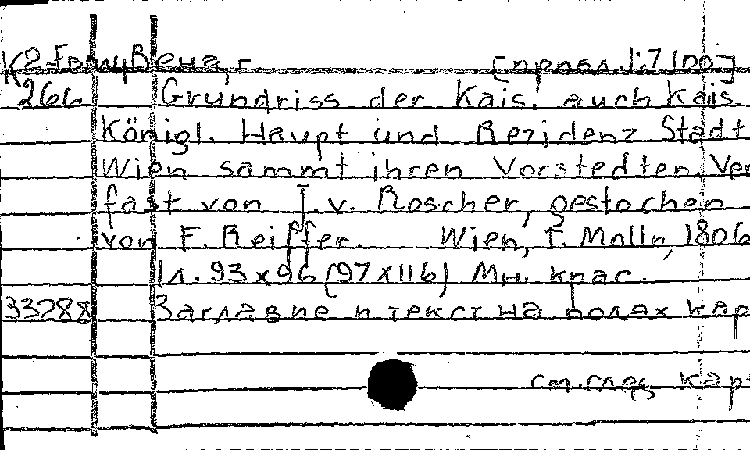 K2-Евр/Вена, г. [прибл. 1:7100]
266 Grundriss der Kais. auch Kais.
Königl. Haupt und Rezidenz Stadt
Wien sammt ihren Vorstedten. Ver
fast von J. v. Roscher, gestochen
von F. Reiffer. Wien, T. Mollo, 1806
1 л. 93x96 (97x116) Мн. крас.
33288 Заглавие и текст на полях кар
см. след. кар